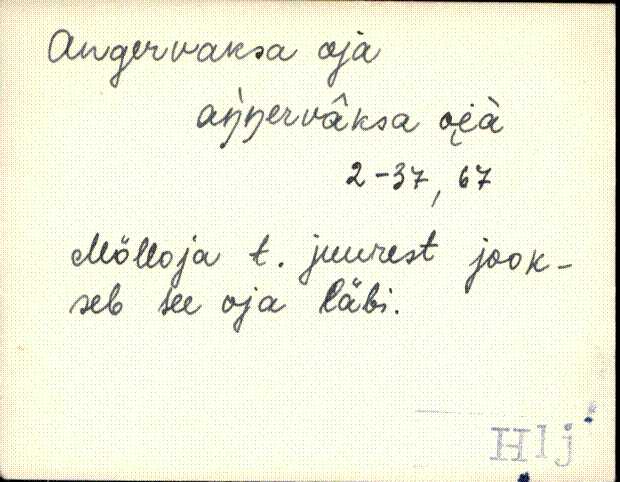 Angervaksa oja
aŋ̀ŋervâksa oi̭à
2-37, 67
Mölloja t. juurest jook-
seb see oja läbi.
Hlj